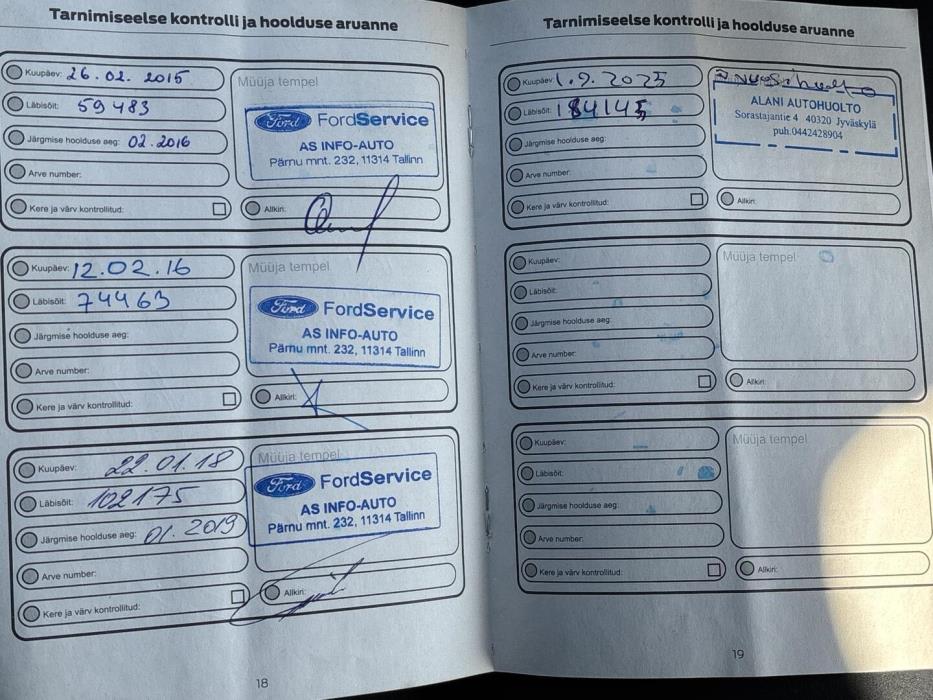 Tarnimiseelse kontrolli ja hoolduse aruanne
Kuupäev: 26.02.2015
Läbisõit: 59483
Järgmise hoolduse aeg: 02.2016
Arve number:
Kere ja värv kontrollitud:
Müüja tempel
Ford FordService
AS INFO-AUTO
Pärnu mnt. 232, 11314 Tallinn
Allkiri:
Kuupäev: 12.02.16
Läbisõit: 74463
Järgmise hoolduse aeg:
Arve number:
Kere ja värv kontrollitud:
Müüja tempel
Ford FordService
AS INFO-AUTO
Pärnu mnt. 232, 11314 Tallinn
Allkiri:
Kuupäev: 22.01.18
Läbisõit: 102175
Järgmise hoolduse aeg: 01.2019
Arve number:
Kere ja värv kontrollitud:
Müüja tempel
Ford FordService
AS INFO-AUTO
Pärnu mnt. 232, 11314 Tallinn
Allkiri:
18
Tarnimiseelse kontrolli ja hoolduse aruanne
Kuupäev: 1.9.2025
Läbisõit: 184145
Järgmise hoolduse aeg:
Arve number:
Kere ja värv kontrollitud:
ALANI AUTOHUOLTO
Sorastajantie 4 40320 Jyväskylä
puh.0442428904
Allkiri:
Kuupäev:
Läbisõit:
Järgmise hoolduse aeg:
Arve number:
Kere ja värv kontrollitud:
Müüja tempel
Allkiri:
Kuupäev:
Läbisõit:
Järgmise hoolduse aeg:
Arve number:
Kere ja värv kontrollitud:
Müüja tempel
Allkiri:
19